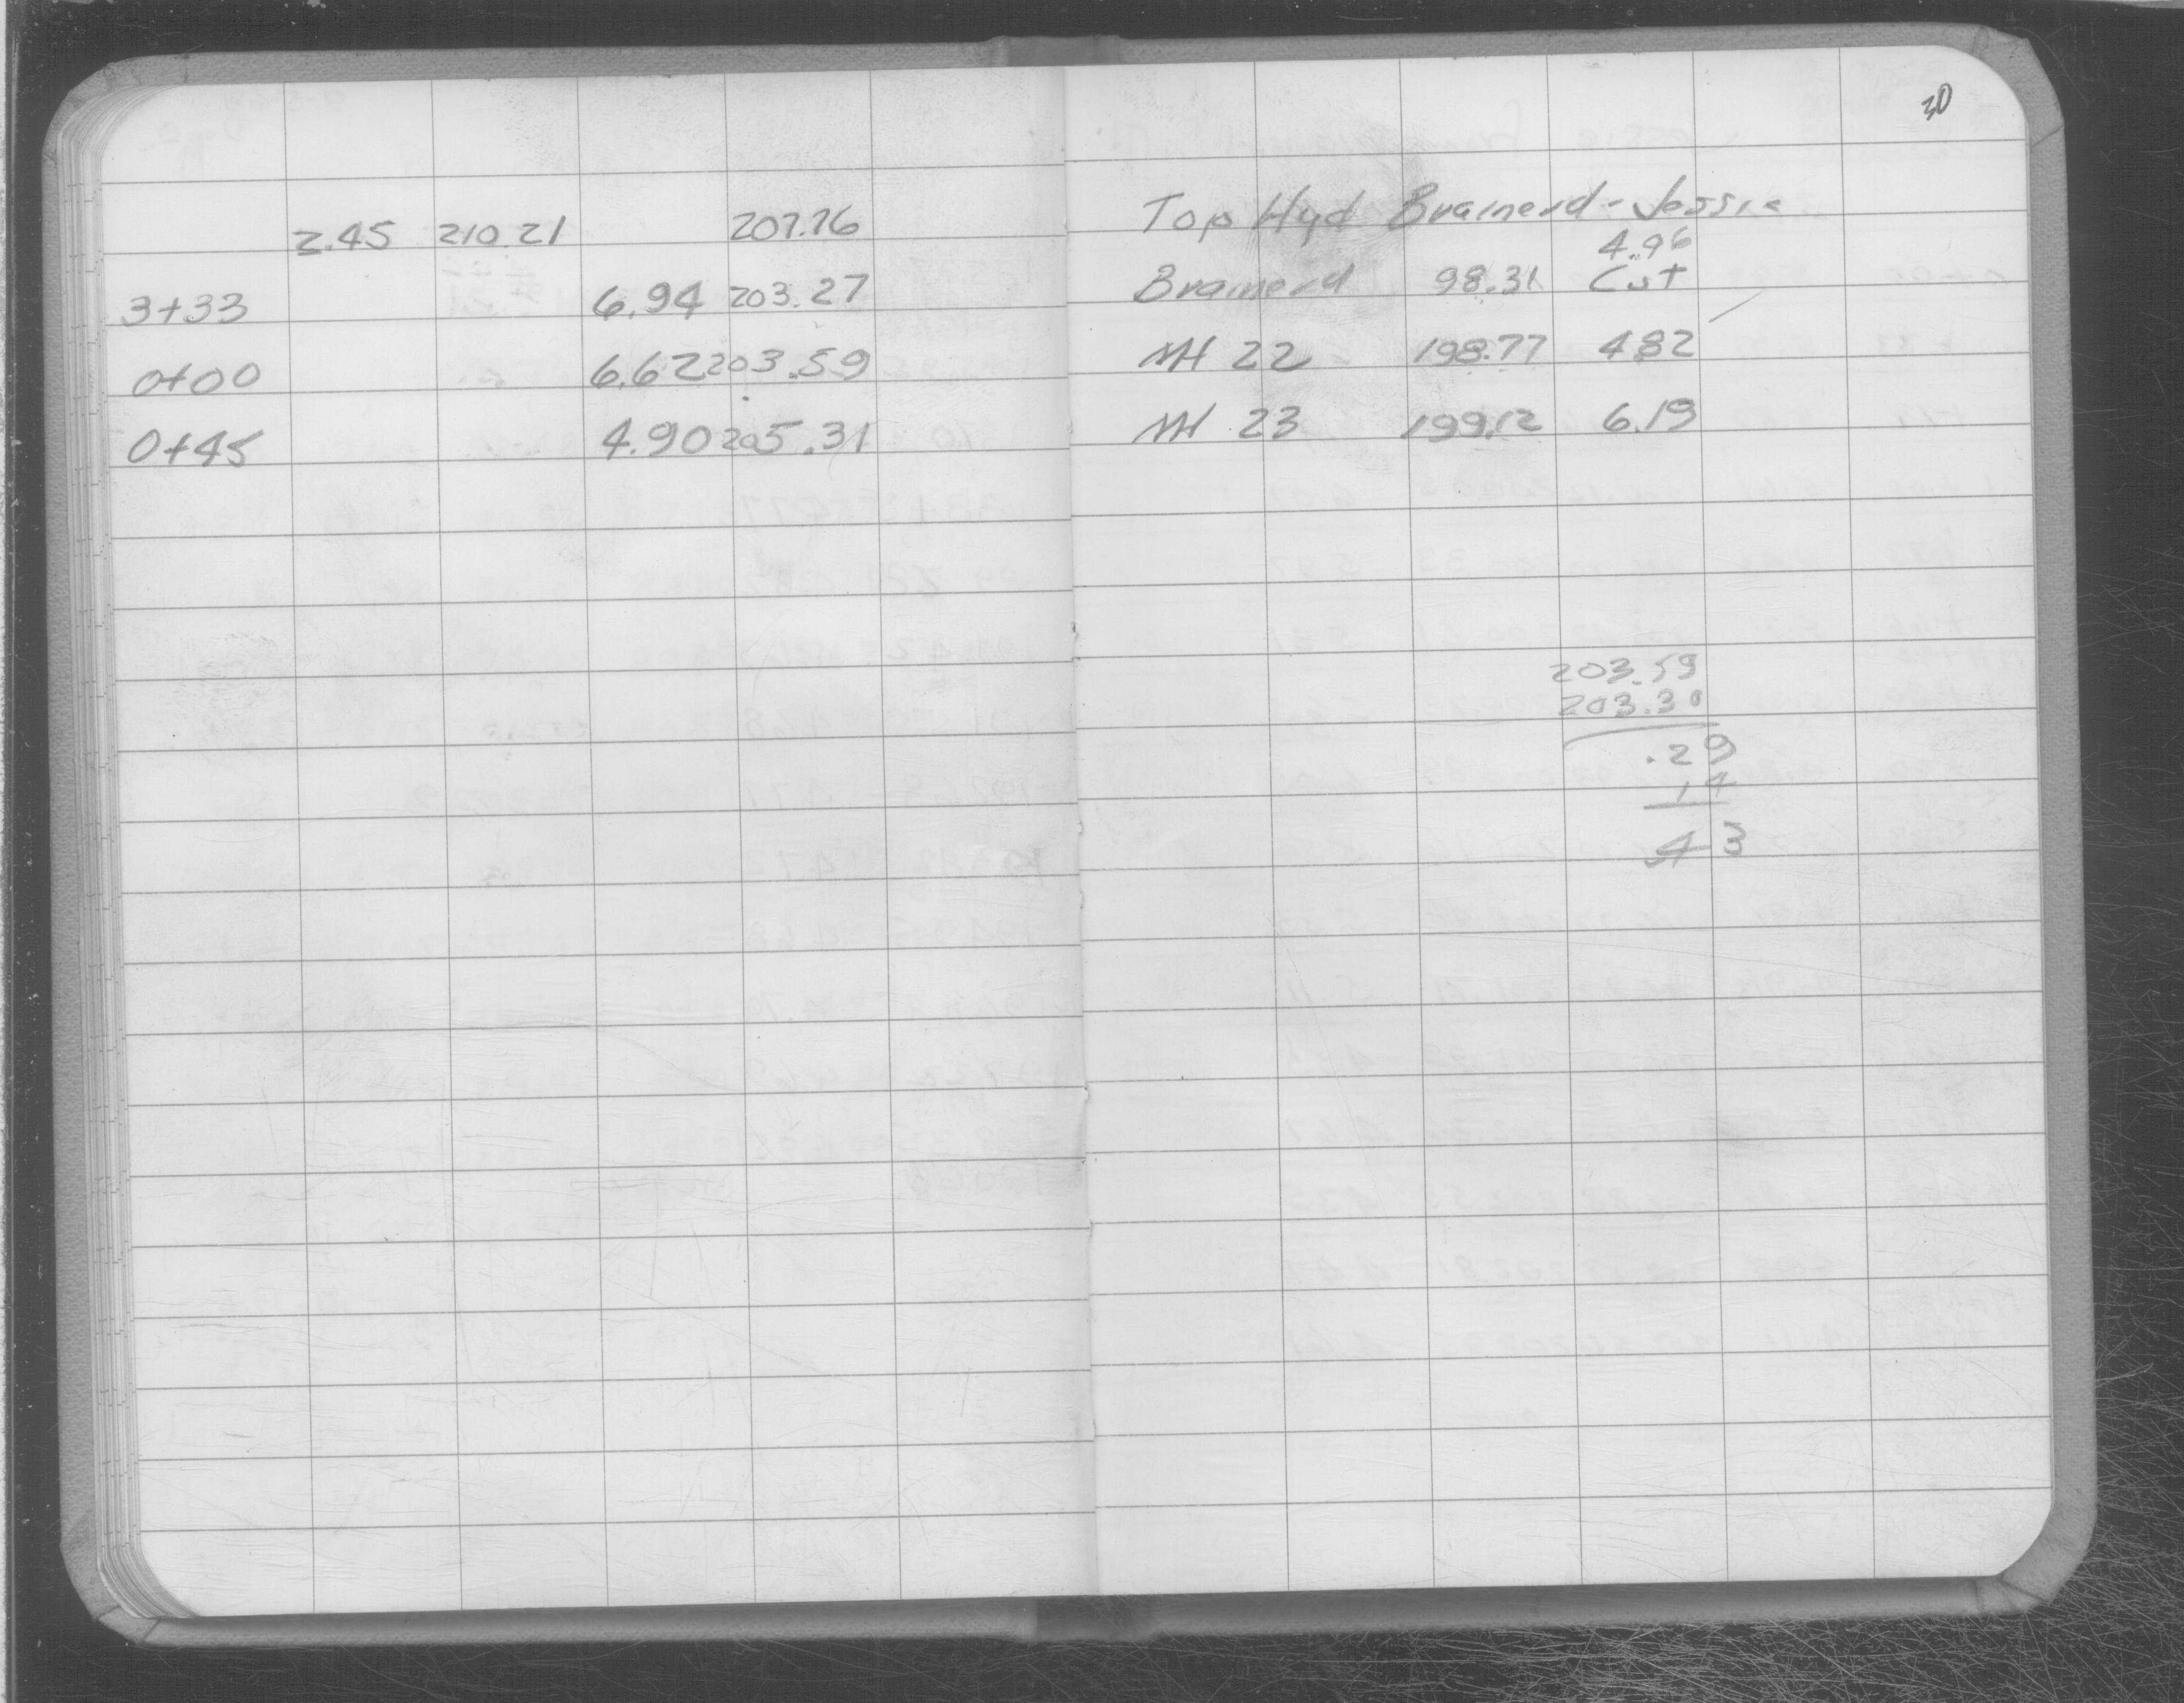 30
2.45 210.21 207.76 Top Hyd Brainerd - Jessie
4.96
3+33 6.94 203.27 Brainerd 98.31 Cut
0+00 6.62 203.59 MH 22 198.77 4.82
0+45 4.90 205.31 MH 23 199.12 6.19
203.59
203.30
.29
.14
43